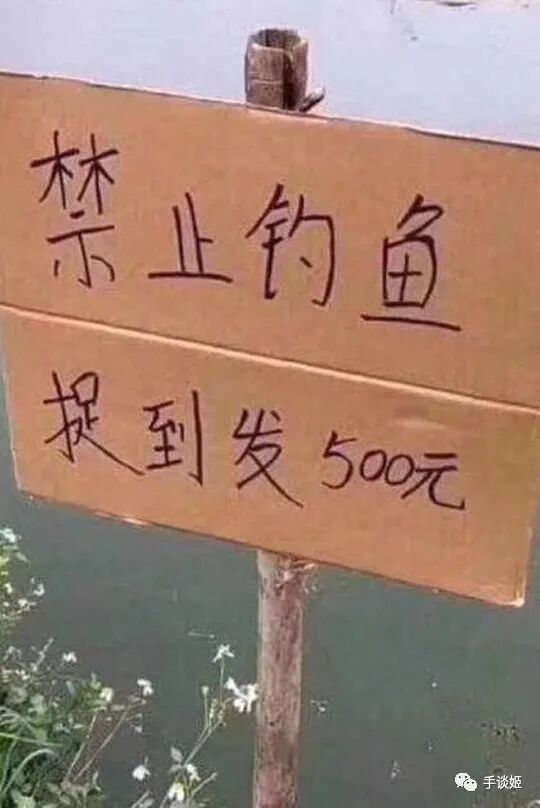 禁止钓鱼
捉到发500元
手谈姬